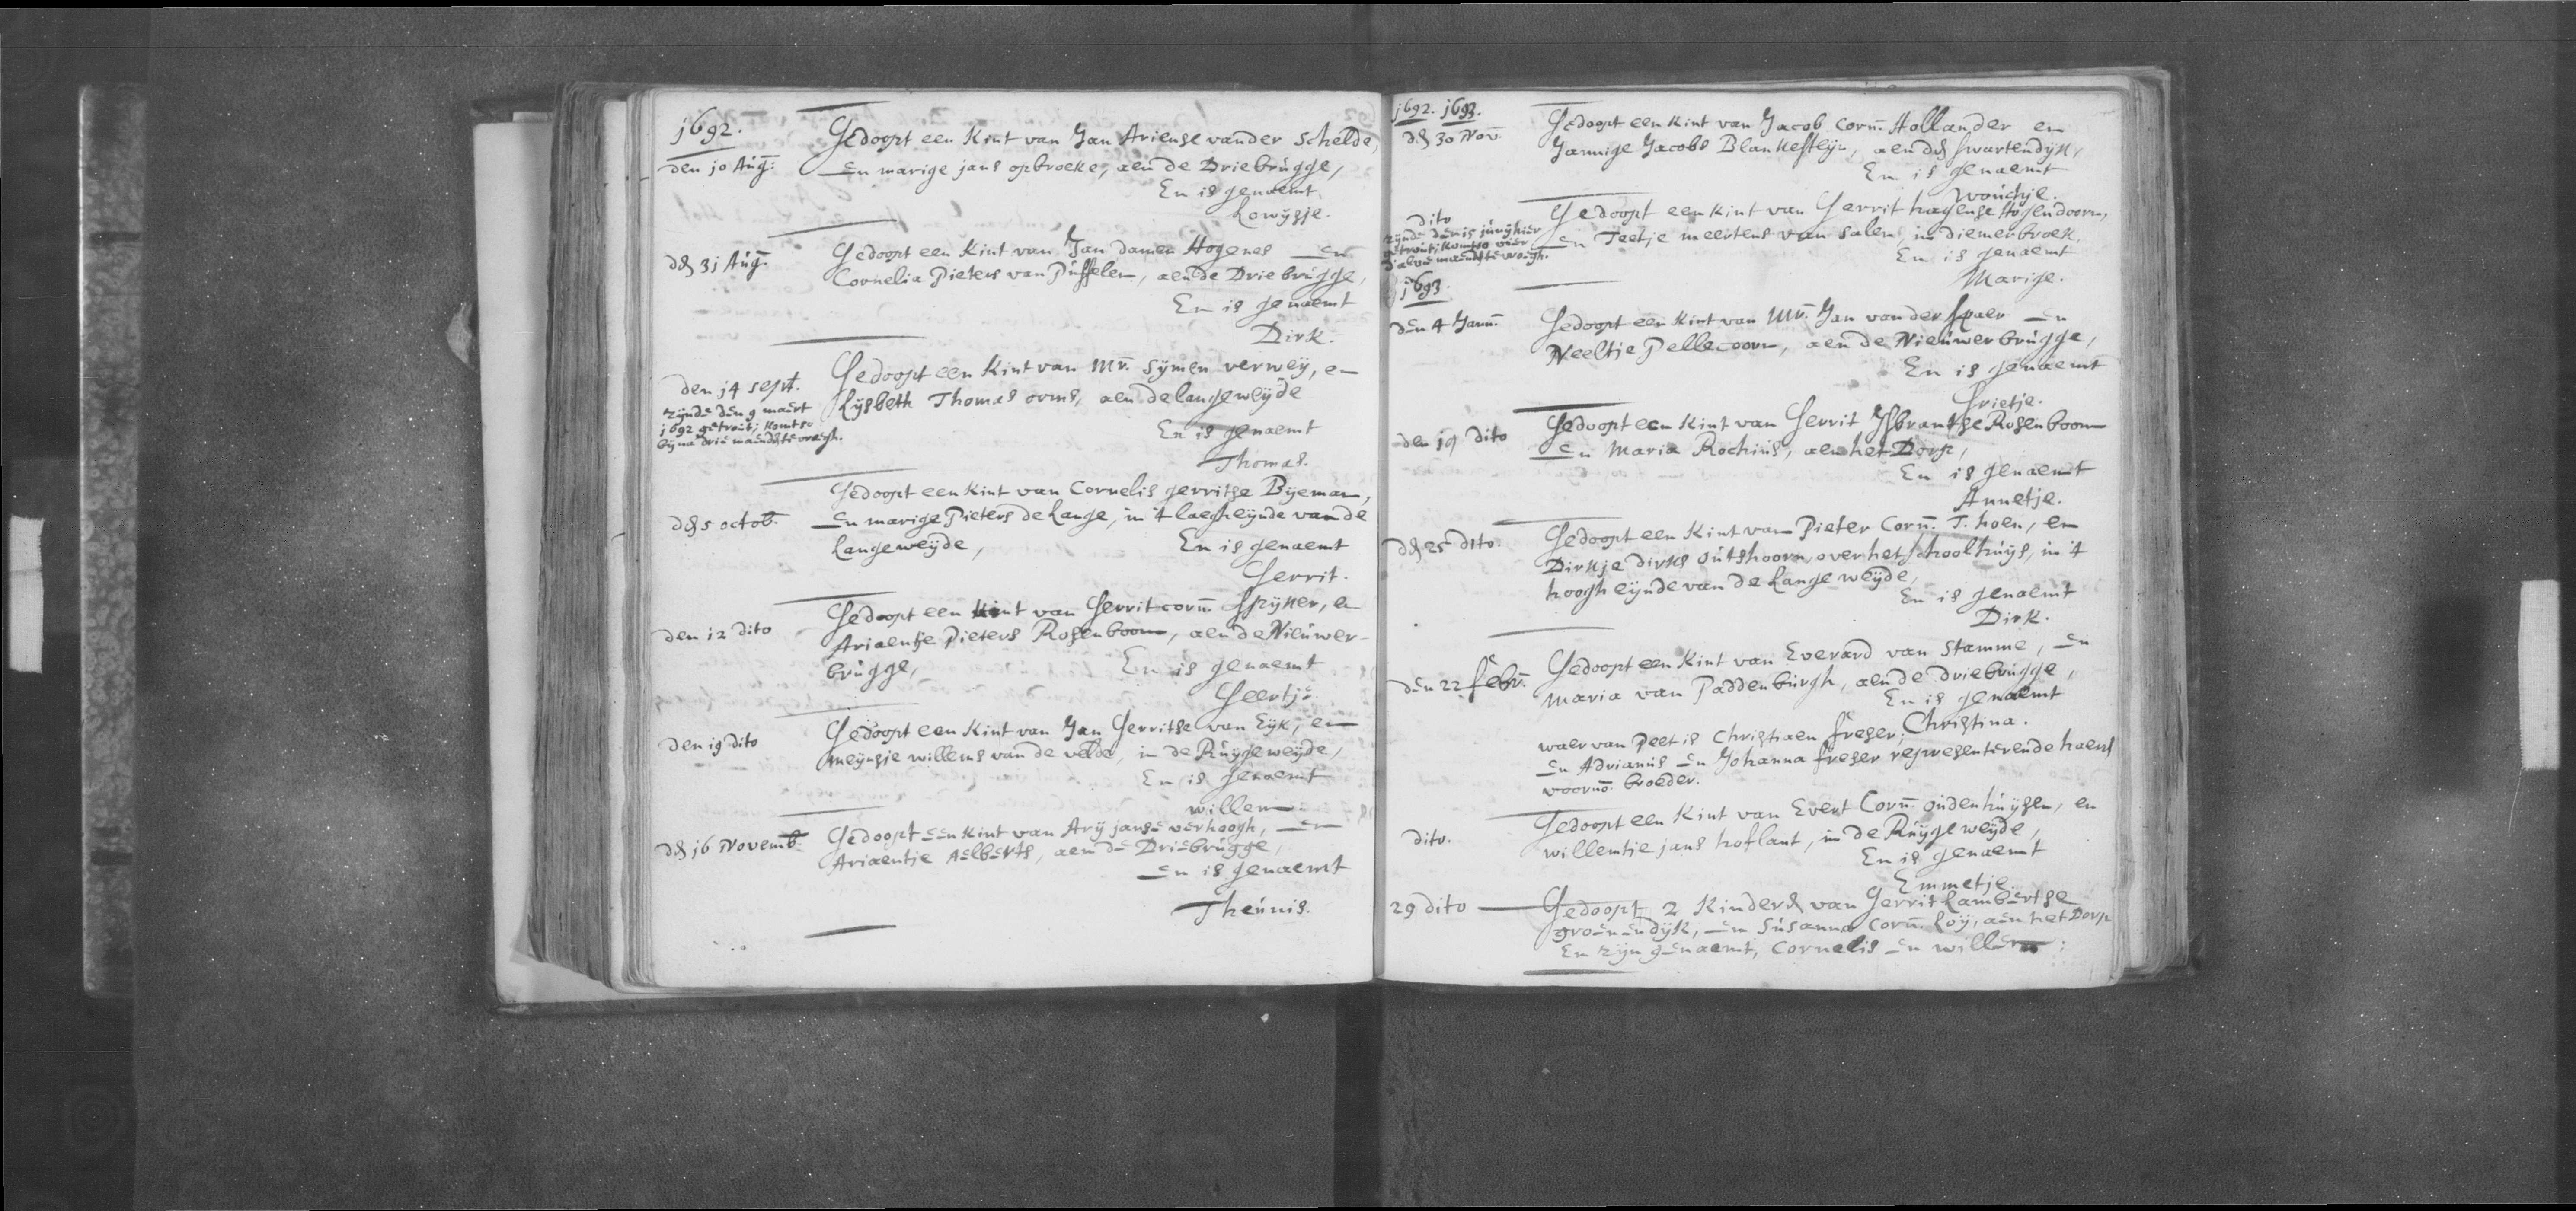 1692.
den 10 Aug: Gedoopt een Kint van Jan Ariense vander Schelde,
en marige jans opbroeke, aen de Driebrugge,
En is genaemt
Lowysje.
den 31 Aug. Gedoopt een Kint van Jan damen Hogenes en
Cornelia Pieters van Puffelen, aen de Driebrugge,
En is genaemt
Dirk.
den 14 sept. Gedoopt een Kint van Mr. Symen verwey, en
zynde den 9 maert Lysbeth Thomas ooms, aen de langeweyde
1692 getrout; komt so En is genaemt
byna drie maenden te vroegh. Thomas.
Gedoopt een Kint van Cornelis gerritse Byeman,
den 5 octob. en marige Pieters de Lange, in 't laegh eynde van de
Langeweyde, En is genaemt
Gerrit.
Gedoopt een Kint van Gerrit corn. Spyker, en
den 12 dito Ariaentje Pieters Rosenboom, aen de Nieuwer-
brugge, En is genaemt
Geertje.
den 19 dito Gedoopt een Kint van Jan Gerritse van Eyk, en
meynsje willems van de velde, in de Ruygeweyde,
En is genaemt
willem.
den 16 Novemb. Gedoopt een Kint van Ary janse verhoogh, en
Ariaentie Aelberts, aen de Driebrugge,
en is genaemt
Theunis.
1692. 1693.
den 30 Nov. Gedoopt een Kint van Jacob Corn. Hollander en
Jannige Jacobs Blankesteyn, aen den swartendyk,
En is genaemt
woutyje.
dito Gedoopt een Kint van Gerrit hagense Hogendoorn,
zynde den 15 juny hier en Teetje meertens van Salen, in diemerbroek,
getrout; komt so vier En is genaemt
halve maendt te vroegh. Marige.
1693.
den 4 Janu. Gedoopt een Kint van Mr. Jan van der spaer en
Neeltje Pellecoorn, aen de Nieuwerbrugge,
En is genaemt
Grietje.
den 19 dito Gedoopt een Kint van Gerrit Ysbrantse Rosenboom
en Maria Rochius, aen het Dorp,
En is genaemt
Annetje.
den 25 dito. Gedoopt een Kint van Pieter Corn. T. hoen, en
Dirkje dirks outshoorn, over het schoolhuys, in 't
hoogh eynde van de Lange weyde,
En is genaemt
Dirk.
den 22 febr. Gedoopt een Kint van Everard van Stamme, en
Maria van Paddenburgh, aen de driebrugge,
En is genaemt
Christina.
waer van Peet is Christiaen freser,
en Adrianus en Johanna freser representerende haers
voorno. broeder.
dito. Gedoopt een Kint van Evert Corn. oudenhuysen, en
willemtje jans hoflant, in de Ruygeweyde,
En is genaemt
Emmetje.
29 dito Gedoopt 2 Kinders van Gerrit Lambertse
groenendyk, en Susanna Corn. Loy, aen het Dorp
En zyn genaemt, Cornelis en willem: